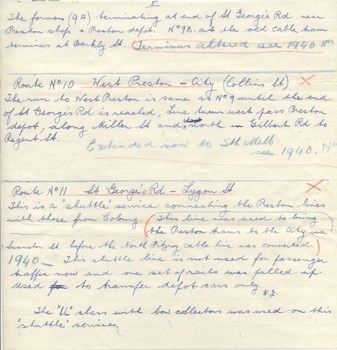 The former (9A) terminating at end of St George's Rd near
Preston shops & Preston depot. No 9B. at the old cable tram
terminus at Barkly St. Terminus altered see 1940
Route No 10 West Preston - City (Collins St)
The run to West Preston is same as No 9 until the end
of St Georges Rd is reached, Line turns west past Preston
depot, along Miller St and north in Gilbert Rd to
Regent St.
Extended now to St Melb.
see 1940.
Route No 11 St George's Rd - Lygon St
This is a "shuttle" service connecting the Preston lines
with those from Coburg. (This line was used to bring
the Preston trams to the City via
St before the North Fitzroy cable line was converted)
1940 - This shuttle line is not used for passenger
traffic now and one set of rails was pulled up.
Used to transfer depot cars only.
The "U" class with bow collectors was used on this
"shuttle" service.